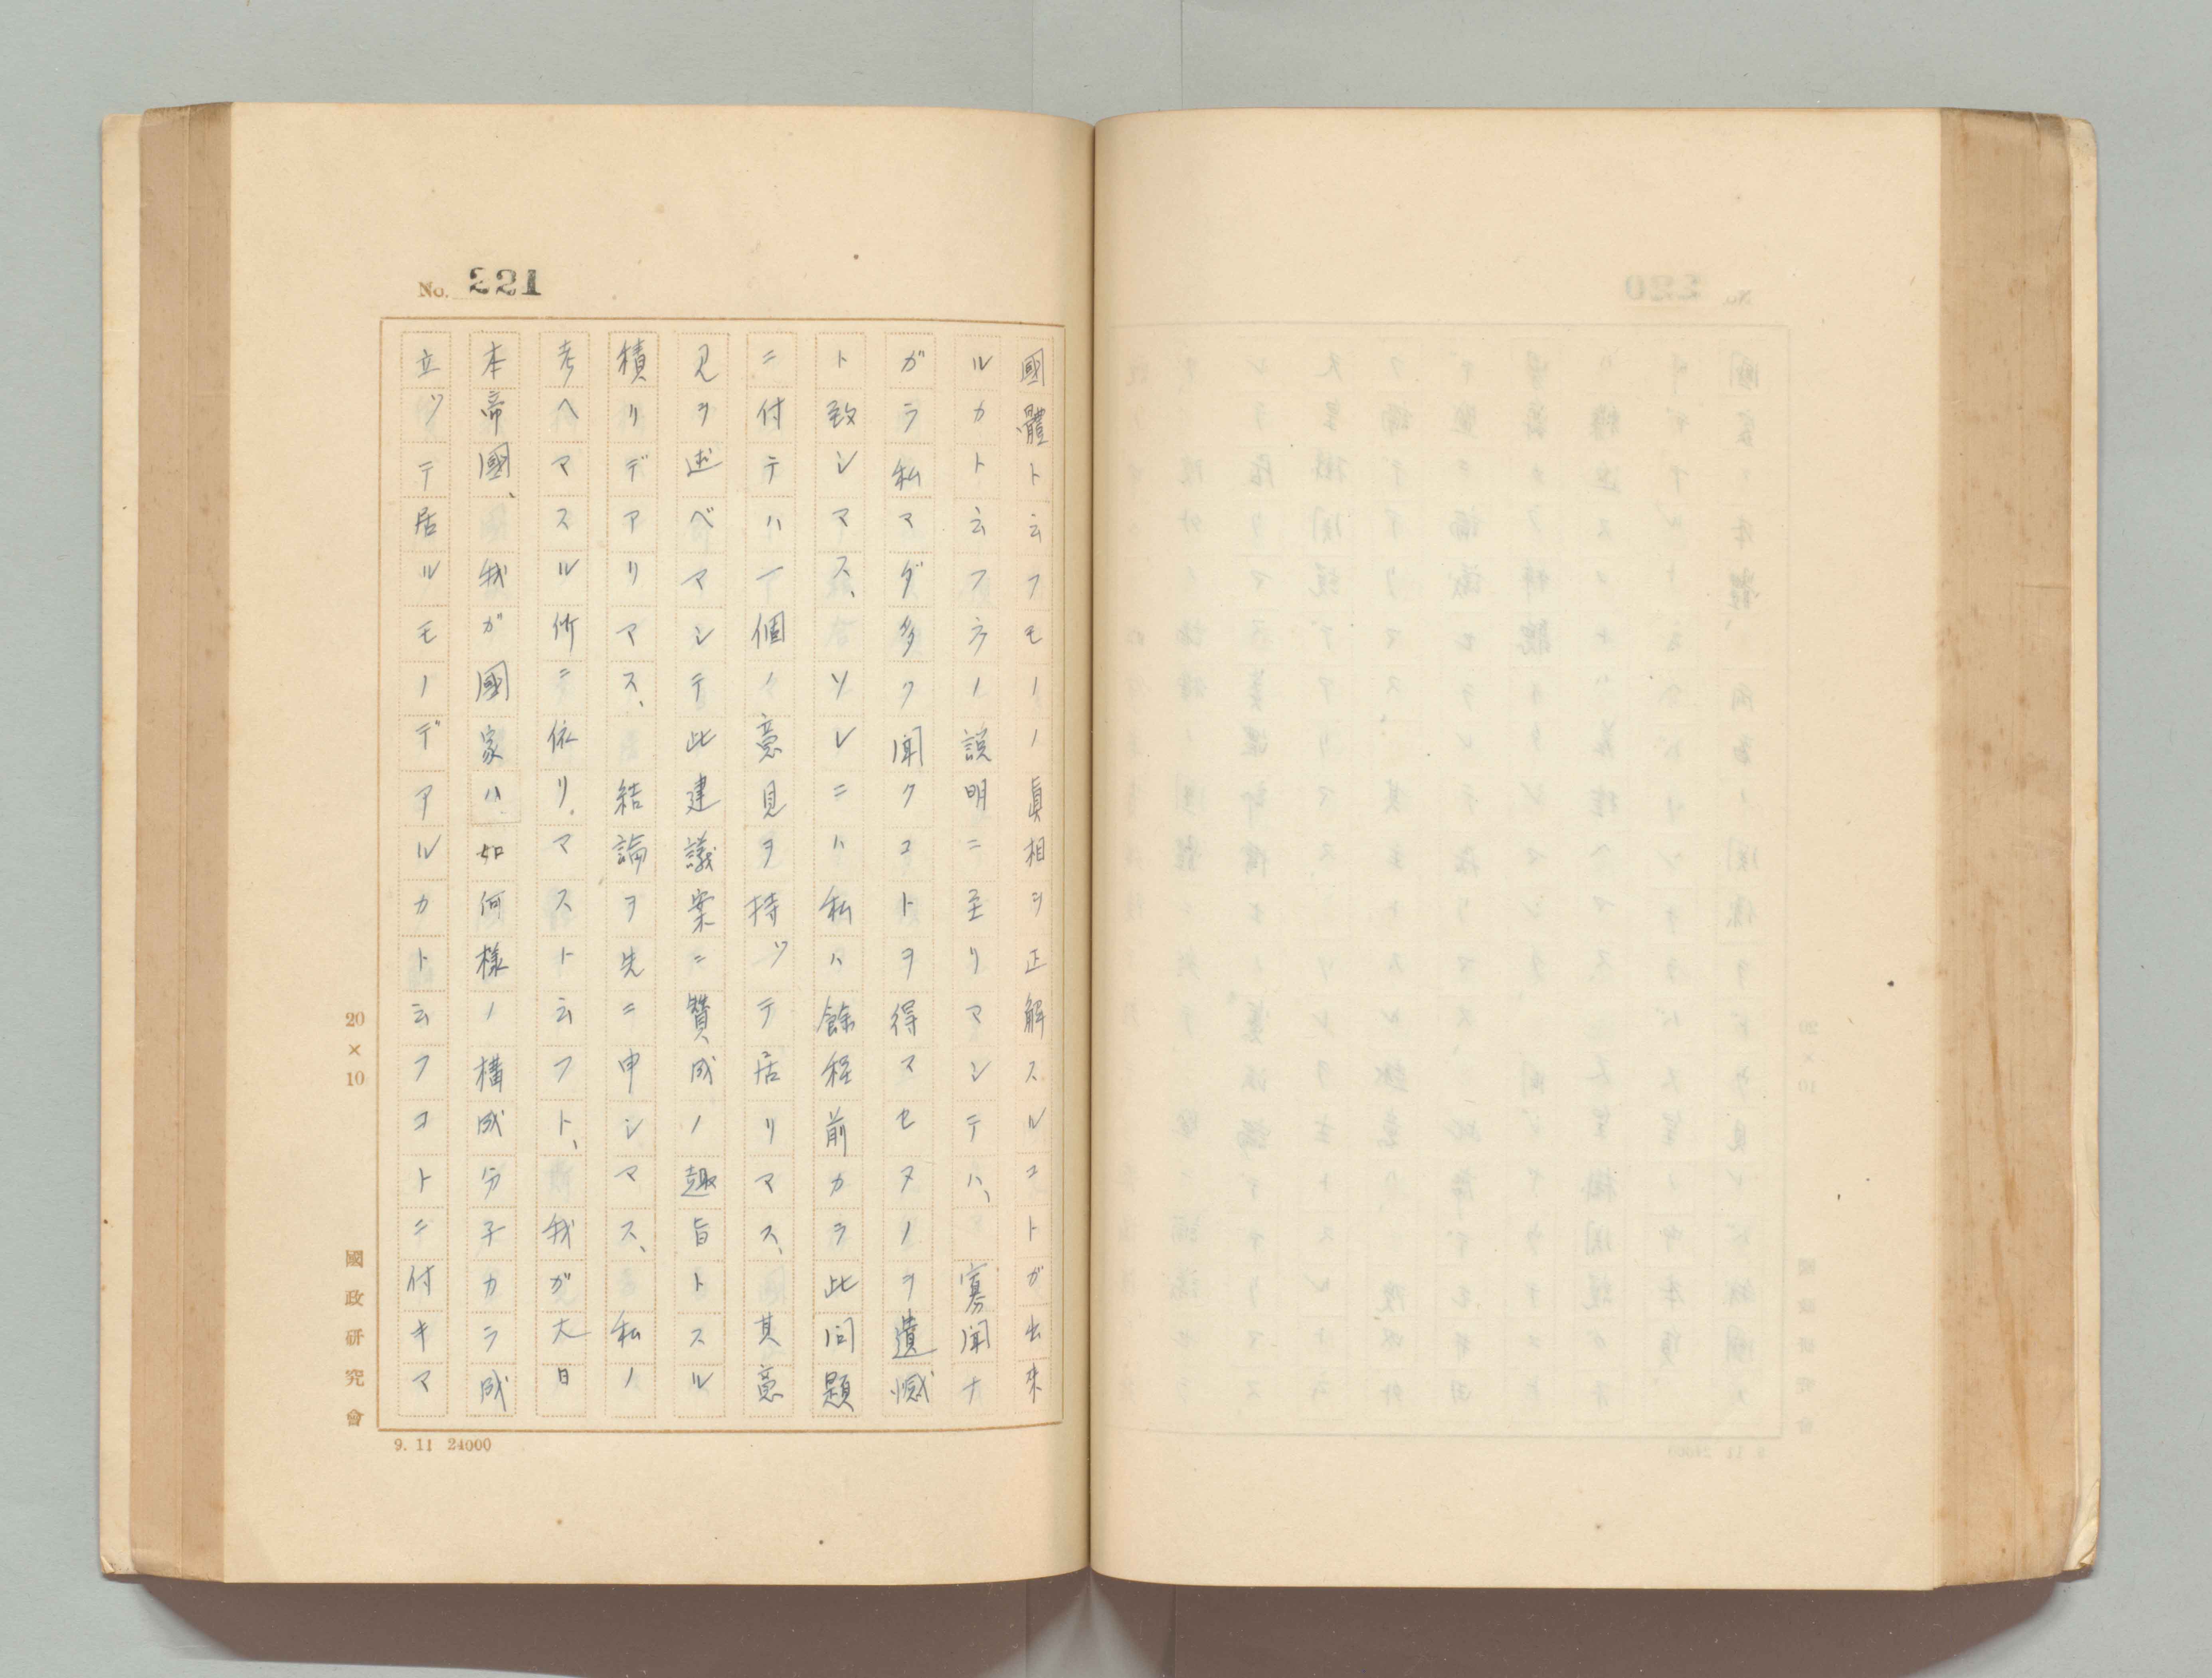 No. 221
國體ト云フモノノ眞相ヲ正解スルコトガ出來
ルカト云フ方ノ説明ニ至リマシテハ、寡聞ナ
ガラ私マダ多ク聞クコトヲ得マセヌノヲ遺憾
ト致シマス、ソレニハ私ハ餘程前カラ此問題
ニ付テハ一個ノ意見ヲ持ツテ居リマス、其意
見ヲ述ベマシテ此建議案ニ賛成ノ趣旨トスル
積リデアリマス、結論ヲ先ニ申シマス、私ノ
考ヘマスル所ニ依リマスト云フト、我ガ大日
本帝國、我ガ國家ハ如何樣ノ構成分子カラ成
立ツテ居ルモノデアルカト云フコトニ付キマ
20×10
國政研究會
9. 11 24000